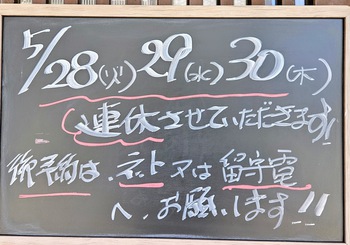 5/28(火)29(水)30(木)
連休させていただきます!!
御予約は、ネット又は留守電
へ、お願いします!!